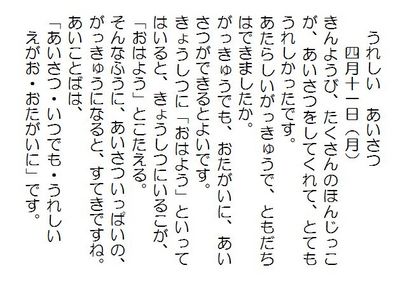 うれしい　あいさつ
四月十一日（月）
きんようび、たくさんのほんじっこ
が、あいさつをしてくれて、とても
うれしかったです。
あたらしいがっきゅうで、ともだち
はできましたか。
がっきゅうでも、おたがいに、あい
さつができるとよいです。
きょうしつに「おはよう」といって
はいると、きょうしつにいるこが、
「おはよう」とこたえる。
そんなふうに、あいさついっぱいの、
がっきゅうになると、すてきですね。
あいことばは、
「あいさつ・いつでも・うれしい
えがお・おたがいに」です。